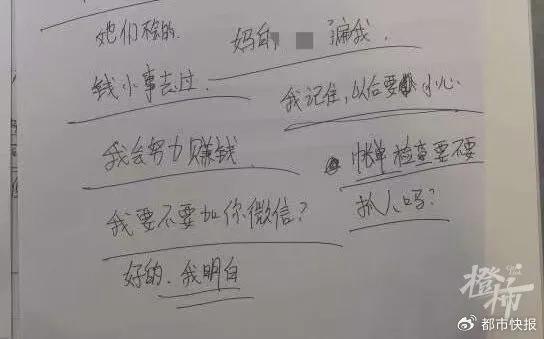 她们 的.
妈 骗我.
钱小事去过.
我记住,以后要小心.
我会努力赚钱.
帐单检查要不要
抓人吗?
我要不要加你微信?
好的.我明白
橙柿
都市快报